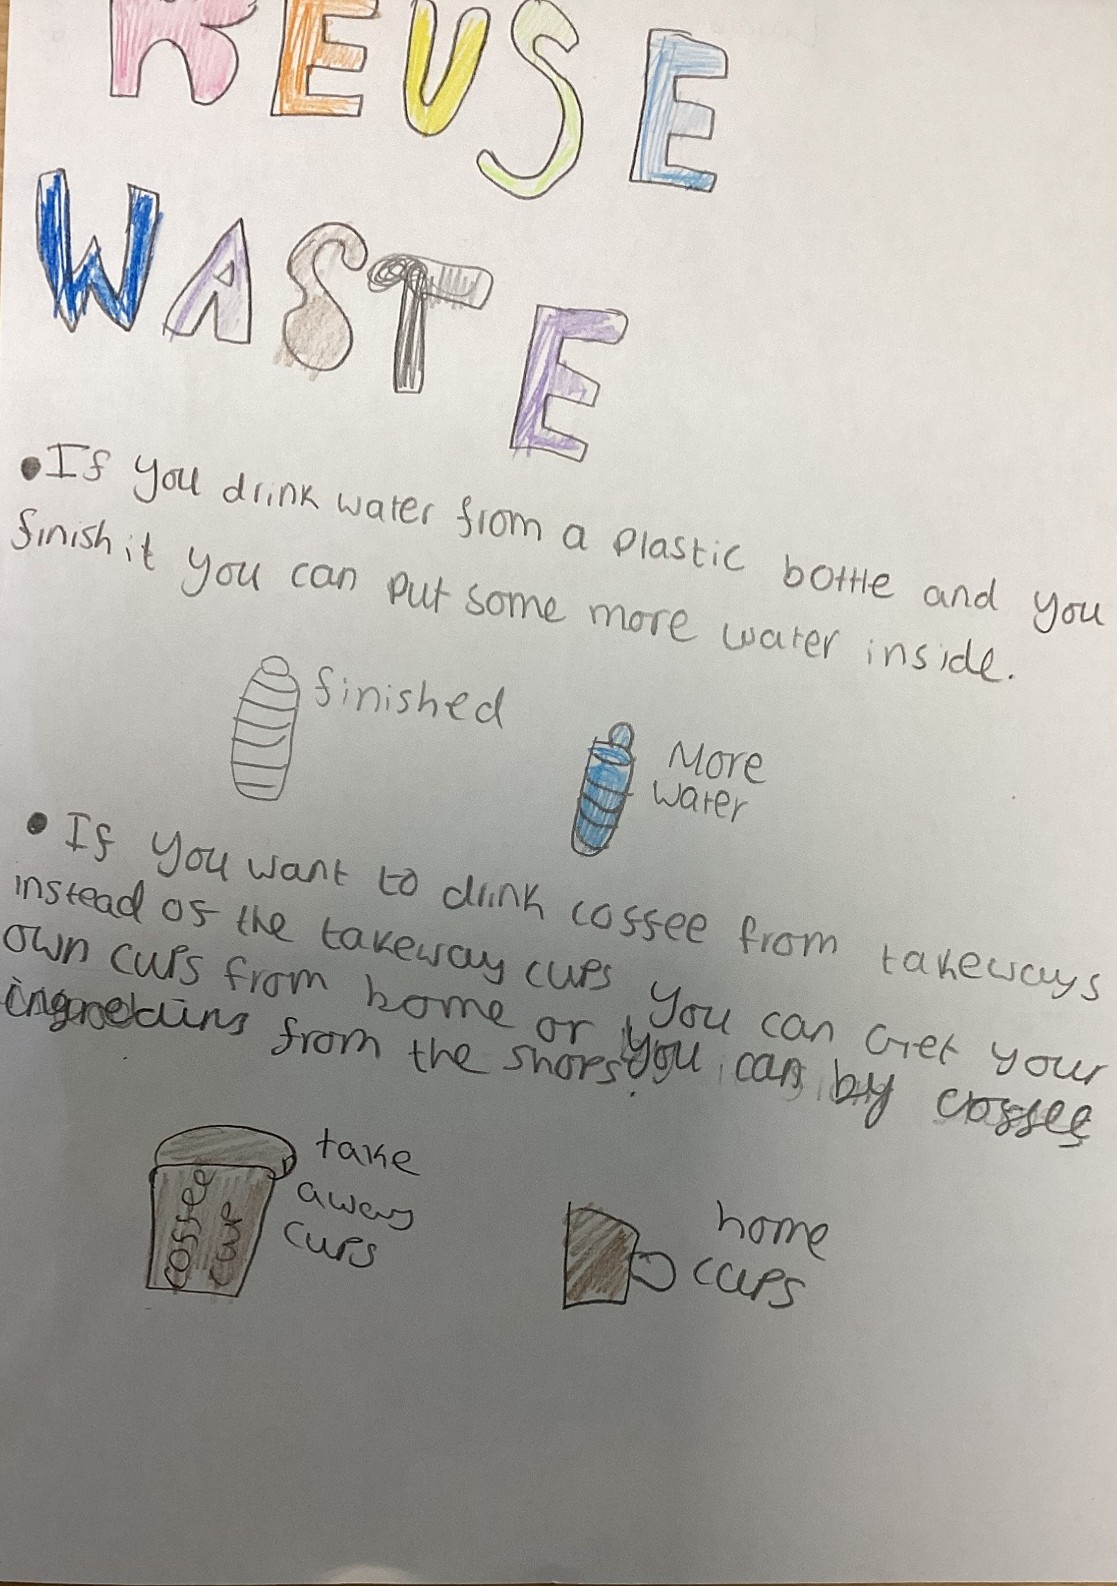 REUSE
WASTE
• If you drink water from a plastic bottle and you
finish it you can put some more water inside.
finished
More
water
• If you want to drink coffee from takeways
instead of the takeway cups you can Get your
own cups from home or you can by coffee
from the shops.
take
away
cups
coffee
cup
home
cups